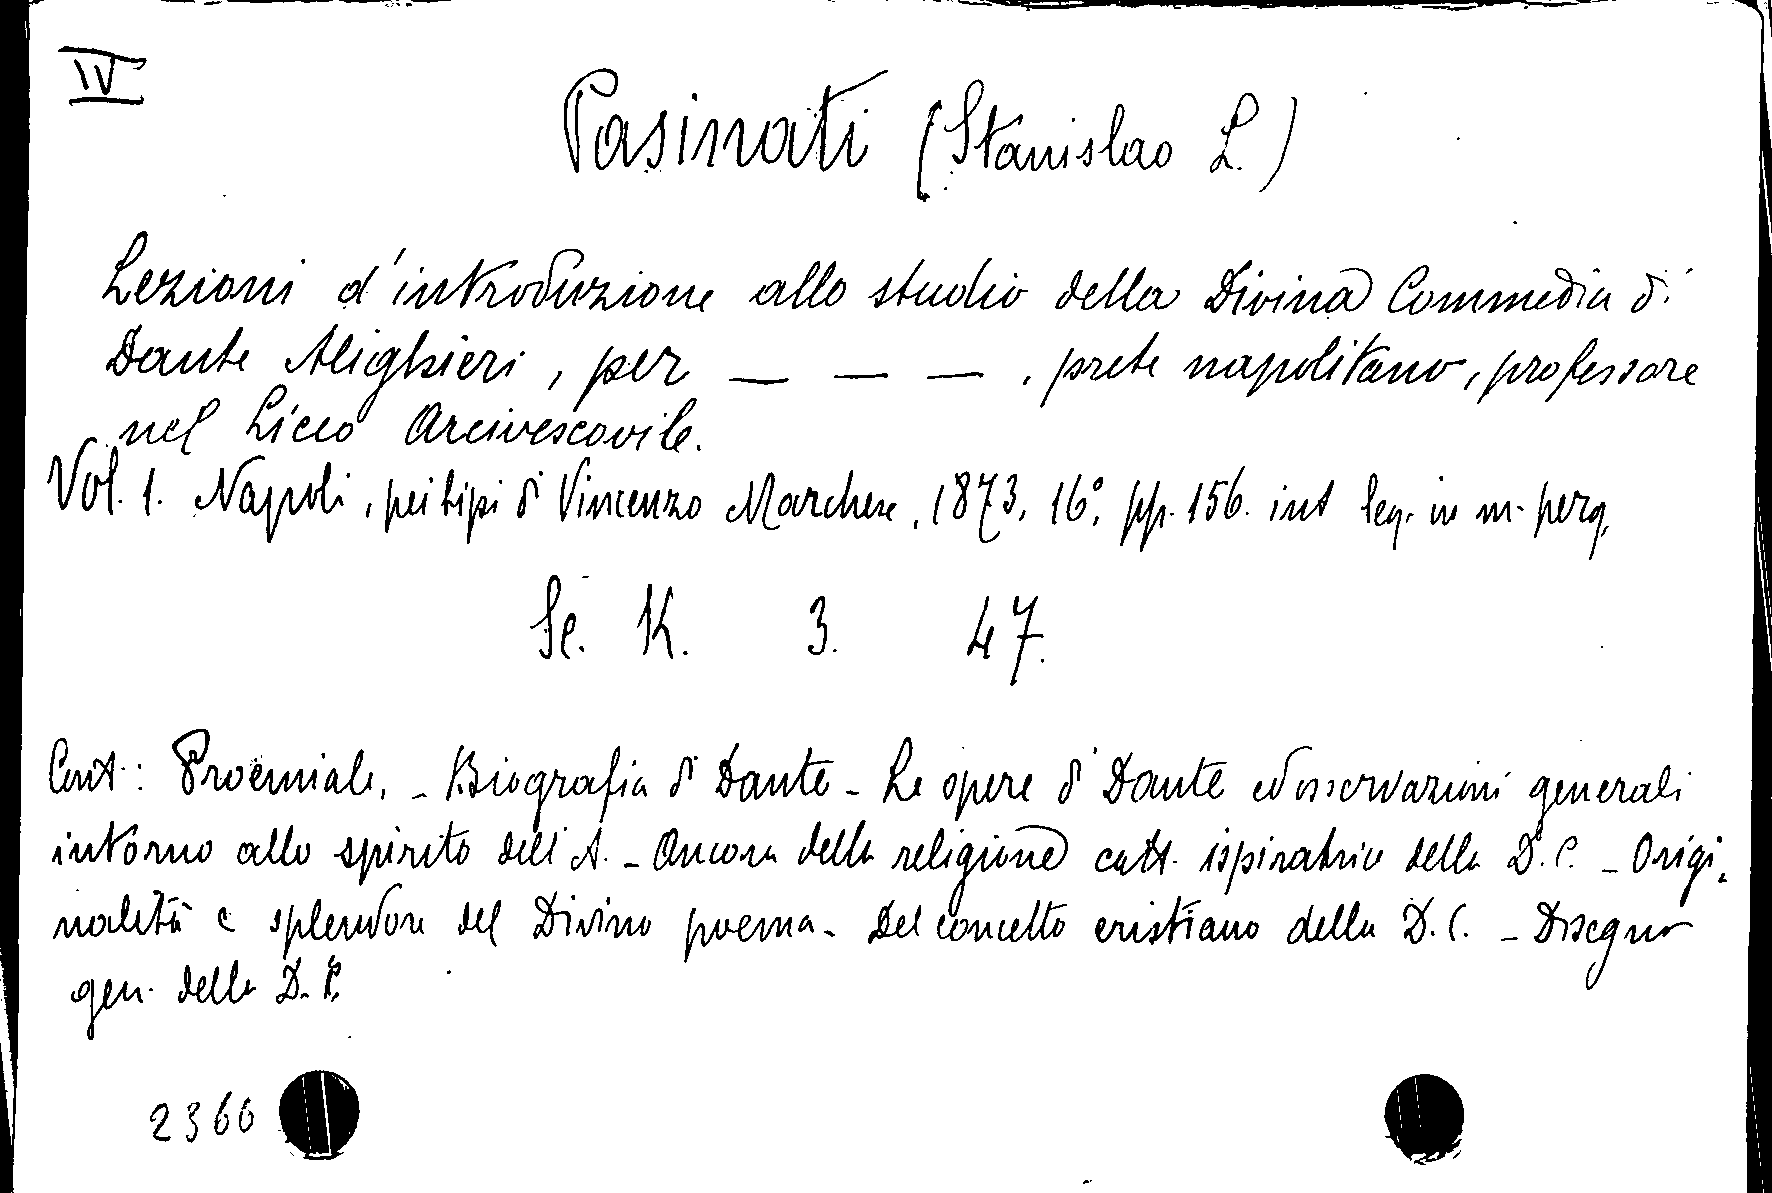 IV
Pasinati (Stanislao L.)
Lezioni d'introduzione allo studio della Divina Commedia di
Dante Alighieri, per — — — , prete napolitano, professore
nel Liceo Arcivescovile.
Vol. 1. Napoli, pei tipi di Vincenzo Marchese, 1873, 16°, pp. 156. int leg. in m. perg.
Se. K. 3. 47.
Cont.: Proemiale. - Biografia di Dante - Le opere di Dante ed osservazioni generali
intorno allo spirito dell'A. - Ancora della religione catt. ispiratrice della D. C. - Origi-
nalità e splendore del Divino poema - Del concetto cristiano della D. C. - Disegno
gen. della D. C.
2366